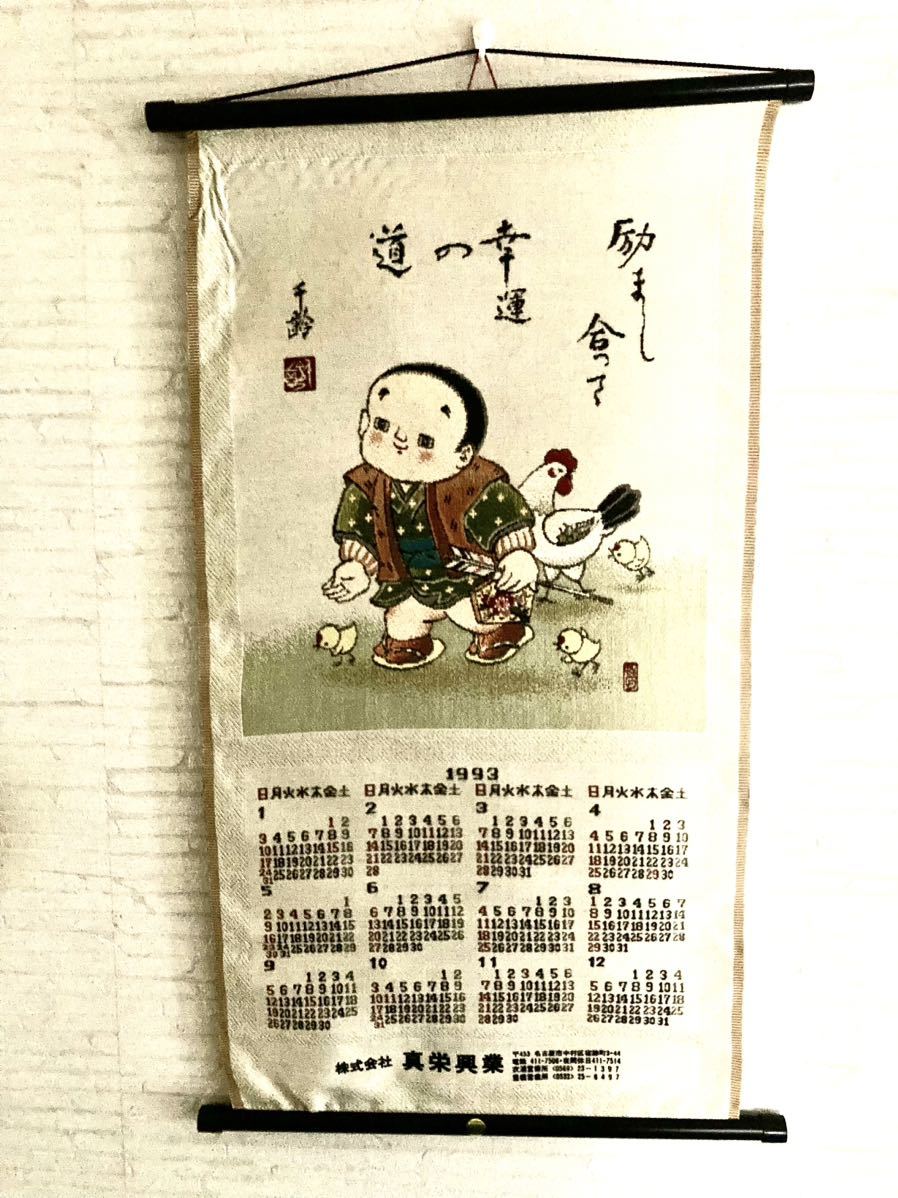 励まし
合って
幸運
の
道
千齢
1993
日月火水木金土
1
1 2
3 4 5 6 7 8 9
10 11 12 13 14 15 16
17 18 19 20 21 22 23
24/31 25 26 27 28 29 30
日月火水木金土
2
1 2 3 4 5 6
7 8 9 10 11 12 13
14 15 16 17 18 19 20
21 22 23 24 25 26 27
28
日月火水木金土
3
1 2 3 4 5 6
7 8 9 10 11 12 13
14 15 16 17 18 19 20
21 22 23 24 25 26 27
28 29 30 31
日月火水木金土
4
1 2 3
4 5 6 7 8 9 10
11 12 13 14 15 16 17
18 19 20 21 22 23 24
25 26 27 28 29 30
5
1
2 3 4 5 6 7 8
9 10 11 12 13 14 15
16 17 18 19 20 21 22
23/30 24/31 25 26 27 28 29
6
1 2 3 4 5
6 7 8 9 10 11 12
13 14 15 16 17 18 19
20 21 22 23 24 25 26
27 28 29 30
7
1 2 3
4 5 6 7 8 9 10
11 12 13 14 15 16 17
18 19 20 21 22 23 24
25 26 27 28 29 30 31
8
1 2 3 4 5 6 7
8 9 10 11 12 13 14
15 16 17 18 19 20 21
22 23 24 25 26 27 28
29 30 31
9
1 2 3 4
5 6 7 8 9 10 11
12 13 14 15 16 17 18
19 20 21 22 23 24 25
26 27 28 29 30
10
1 2
3 4 5 6 7 8 9
10 11 12 13 14 15 16
17 18 19 20 21 22 23
24/31 25 26 27 28 29 30
11
1 2 3 4 5 6
7 8 9 10 11 12 13
14 15 16 17 18 19 20
21 22 23 24 25 26 27
28 29 30
12
1 2 3 4
5 6 7 8 9 10 11
12 13 14 15 16 17 18
19 20 21 22 23 24 25
26 27 28 29 30 31
株式会社 真栄興業
〒453 名古屋市中村区宿跡町3-44
電話 411-7506・夜間休日411-7514
衣浦営業所 (0569) 23-1397
豊橋営業所 (0532) 25-6497